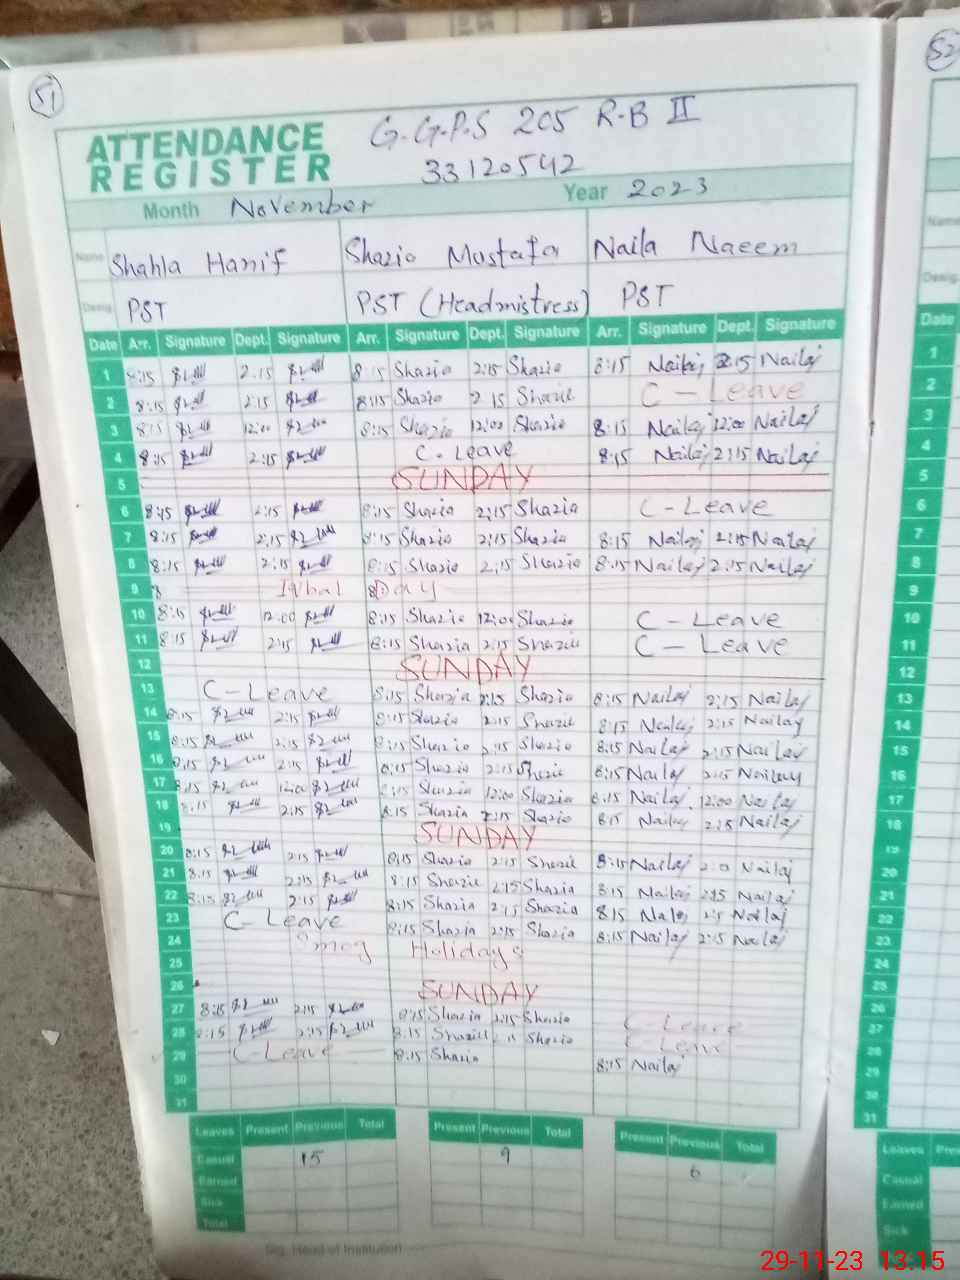 51
52
ATTENDANCE REGISTER
G.G.P.S 205 R.B II
33120542
Month November Year 2023
Name Shahla Hanif Shazia Mustafa Naila Naeem
Desig. PST PST (Headmistress) PST
Date Arr. Signature Dept. Signature Arr. Signature Dept. Signature Arr. Signature Dept. Signature
1 8:15 2:15 8:15 Shazia 2:15 Shazia 8:15 Nailaj 2:15 Nailaj
2 8:15 2:15 8:15 Shazia 2:15 Shazia C - Leave
3 8:15 12:00 8:15 Shazia 12:00 Shazia 8:15 Nailaj 12:00 Nailaj
4 8:15 2:15 C - Leave 8:15 Nailaj 2:15 Nailaj
5 SUNDAY
6 8:15 2:15 8:15 Shazia 2:15 Shazia C - Leave
7 8:15 2:15 8:15 Shazia 2:15 Shazia 8:15 Nailaj 2:15 Nailaj
8 8:15 2:15 8:15 Shazia 2:15 Shazia 8:15 Nailaj 2:15 Nailaj
9 Iqbal Day
10 8:15 12:00 8:15 Shazia 12:00 Shazia C - Leave
11 8:15 2:15 8:15 Shazia 2:15 Shazia C - Leave
12 SUNDAY
13 C - Leave 8:15 Shazia 2:15 Shazia 8:15 Nailaj 2:15 Nailaj
14 8:15 2:15 8:15 Shazia 2:15 Shazia 8:15 Nailaj 2:15 Nailaj
15 8:15 2:15 8:15 Shazia 2:15 Shazia 8:15 Nailaj 2:15 Nailaj
16 8:15 2:15 8:15 Shazia 2:15 Shazia 8:15 Nailaj 2:15 Nailaj
17 8:15 12:00 8:15 Shazia 12:00 Shazia 8:15 Nailaj 12:00 Nailaj
18 8:15 2:15 8:15 Shazia 2:15 Shazia 8:15 Nailaj 2:15 Nailaj
19 SUNDAY
20 8:15 2:15 8:15 Shazia 2:15 Shazia 8:15 Nailaj Nailaj
21 8:15 2:15 8:15 Shazia 2:15 Shazia 8:15 Nailaj 2:15 Nailaj
22 8:15 2:15 8:15 Shazia 2:15 Shazia 8:15 Nailaj 2:15 Nailaj
23 C - Leave 8:15 Shazia 2:15 Shazia 8:15 Nailaj 2:15 Nailaj
24 Smog Holidays
25
26 SUNDAY
27 8:15 2:15 8:15 Shazia 2:15 Shazia C - Leave
28 8:15 2:15 8:15 Shazia 2:15 Shazia C - Leave
29 C - Leave 8:15 Shazia 8:15 Nailaj
30
31
Leaves Present Previous Total Present Previous Total Present Previous Total
Casual 15 9 6
Earned
Sick
Total
Sig. Head of Institution
Name
Desig.
Date
1
2
3
4
5
6
7
8
9
10
11
12
13
14
15
16
17
18
19
20
21
22
23
24
25
26
27
28
29
30
31
Leaves
Casual
Earned
Sick
29-11-23 13:15